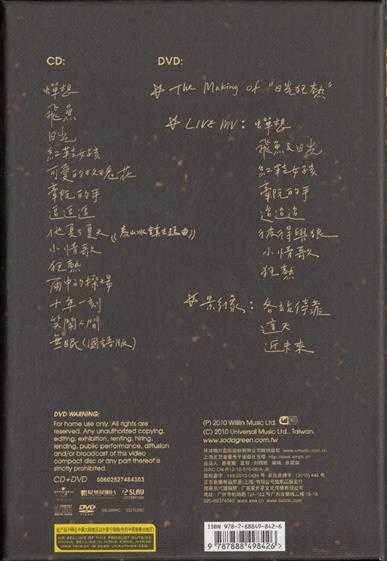 CD:
蟬想
飛魚
日光
紅鞋女孩
可愛的玫瑰花
牽阮的手
追追追
他夏了夏天
小情歌
狂熱
雨中的操場
十年一刻
笑聞人間
無眠(國語版)
DVD:
The Making of "日光狂熱"
LIVE MV: 蟬想
飛魚&日光
紅鞋女孩
牽阮的手
追追追
彼得與狼
小情歌
狂熱
影像: 各站停靠
這天
近未來
DVD WARNING:
For home use only. All rights are
reserved. Any unauthorized copying,
editing, exhibition, renting, hiring,
lending, public performance, diffusion
and/or broadcast of this video
compact disc or any part thereof is
strictly prohibited.
CD+DVD 00602527484303
(P) 2010 Willin Music Ltd.
(C) 2010 Universal Music Ltd., Taiwan.
www.sodagreen.com
ISBN 978-7-88849-842-6
9 787888 498426